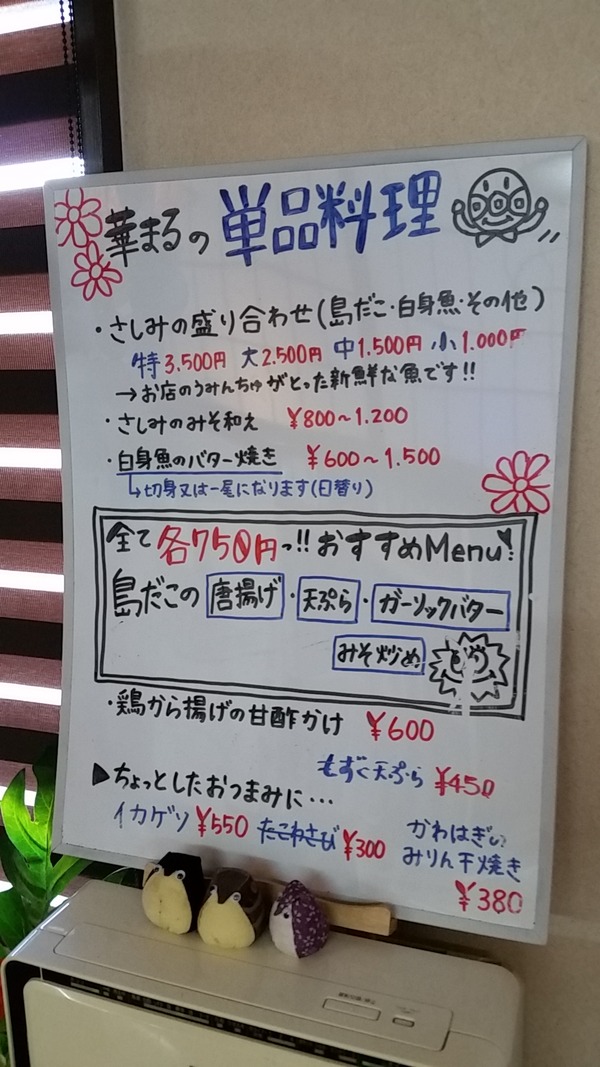 華まるの 単品料理
・さしみの盛り合わせ(島だこ・白身魚・その他)
特3.500円 大2.500円 中1.500円 小1.000円
→お店のうみんちゅがとった新鮮な魚です!!
・さしみのみそ和え ¥800~1.200
・白身魚のバター焼き ¥600~1.500
切身又は一尾になります(日替り)
全て各750円っ!!おすすめMenu!
島だこの 唐揚げ・天ぷら・ガーリックバター
みそ炒め
・鶏から揚げの甘酢かけ ¥600
もずく天ぷら ¥450
▶ちょっとしたおつまみに…
イカゲソ ¥550 たこわさび ¥300 かわはぎの
みりん干焼き
¥380